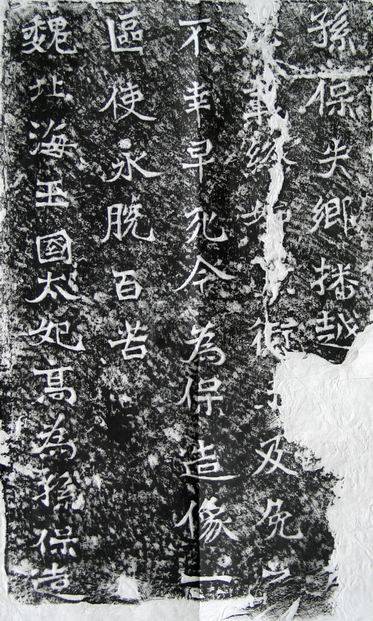 孫保失鄉播越
載 及免
不幸早死今為保造像一
區使永脱百苦
魏北海王國太妃高為孫保造